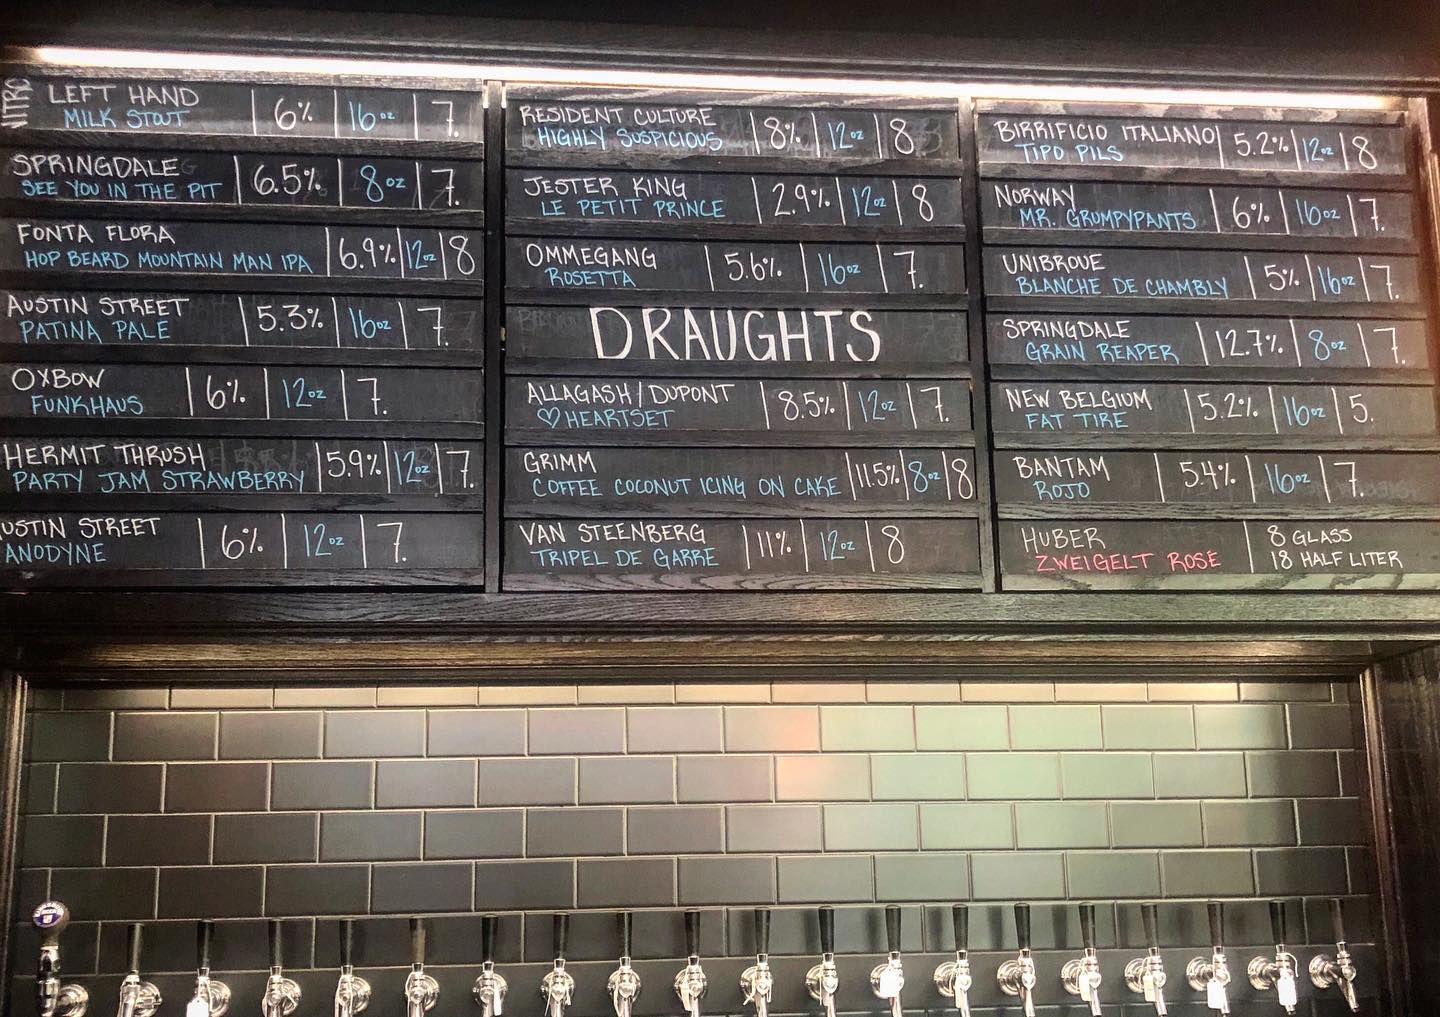 NITRO
LEFT HAND 6% 16oz 7.
MILK STOUT
SPRINGDALE 6.5% 8oz 7.
SEE YOU IN THE PIT
FONTA FLORA 6.9% 12oz 8
HOP BEARD MOUNTAIN MAN IPA
AUSTIN STREET 5.3% 16oz 7.
PATINA PALE
OXBOW 6% 12oz 7.
FUNKHAUS
HERMIT THRUSH 5.9% 12oz 7.
PARTY JAM STRAWBERRY
USTIN STREET 6% 12oz 7.
ANODYNE
RESIDENT CULTURE 8% 12oz 8
HIGHLY SUSPICIOUS
JESTER KING 2.9% 12oz 8
LE PETIT PRINCE
OMMEGANG 5.6% 16oz 7.
ROSETTA
DRAUGHTS
ALLAGASH/DUPONT 8.5% 12oz 7.
♡ HEARTSET
GRIMM 11.5% 8oz 8
COFFEE COCONUT ICING ON CAKE
VAN STEENBERG 11% 12oz 8
TRIPEL DE GARRE
BIRRIFICIO ITALIANO 5.2% 12oz 8
TIPO PILS
NORWAY 6% 16oz 7.
MR. GRUMPYPANTS
UNIBROUE 5% 16oz 7.
BLANCHE DE CHAMBLY
SPRINGDALE 12.7% 8oz 7.
GRAIN REAPER
NEW BELGIUM 5.2% 16oz 5.
FAT TIRE
BANTAM 5.4% 16oz 7.
ROJO
HUBER 8 GLASS
ZWEIGELT ROSÉ 18 HALF LITER